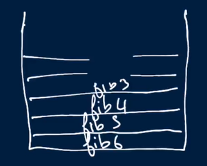 fib 3
fib 4
fib 5
fib 6